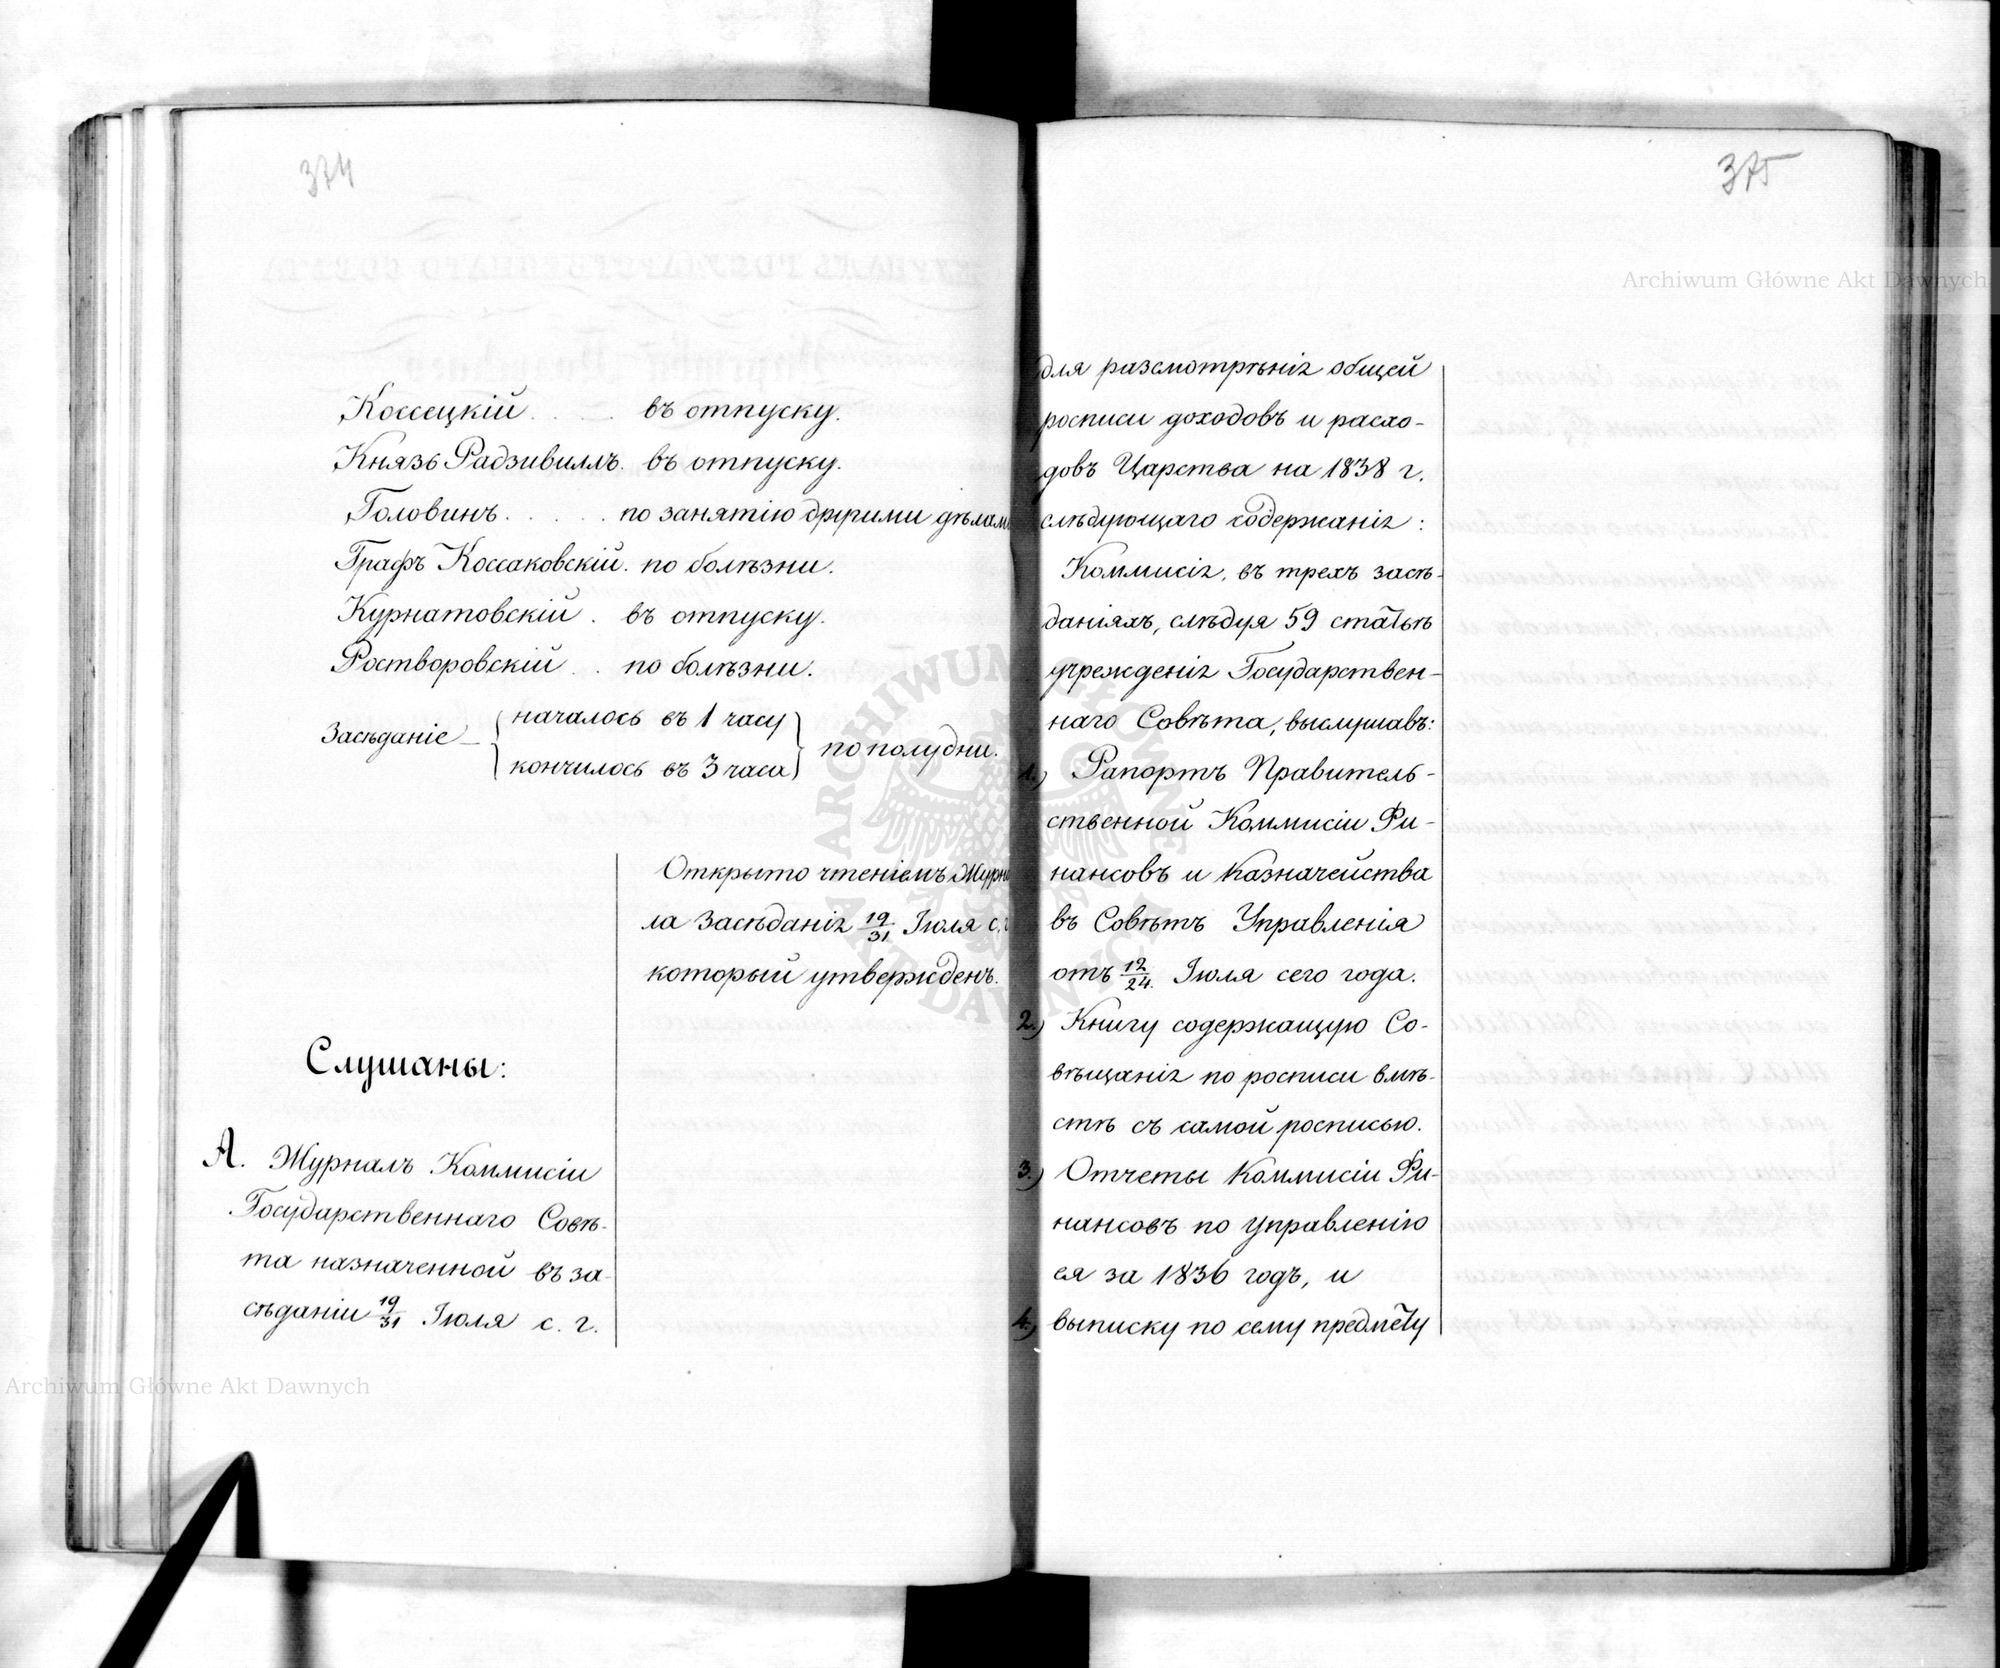 374
Коссецкій . . . въ отпуску.
Князь Радзивиллъ. въ отпуску.
Головинъ . . . . . по занятію другими дѣлами
Графъ Коссаковскій. по болѣзни.
Курнатовскій . въ отпуску.
Ростворовскій . . по болѣзни.
Засѣданіе – началось въ 1 часу
кончилось въ 3 часа
по полудни.
Открыто чтеніемъ Журна
ла Засѣданія 19/31 Іюля с. г.
который утвержденъ.
Слушаны:
А. Журналъ Коммисіи
Государственнаго Совѣ-
та назначенной въ за-
сѣданіи 19/31 Іюля с. г.
375
для разсмотрѣнія общей
росписи доходовъ и расхо-
довъ Царства на 1838 г.
слѣдующаго содержанія:
Коммисія, въ трехъ засѣ-
даніяхъ, слѣдуя 59 статьѣ
учрежденія Государствен-
наго Совѣта, выслушавъ:
1.) Рапортъ Правитель-
ственной Коммисіи Фи-
нансовъ и Казначейства
въ Совѣтъ Управленія
отъ 12/24. Іюля сего года.
2.) Книгу содержащую Со-
вѣщанія по росписи вмѣ-
стѣ съ самой росписью.
3.) Отчеты Коммисіи Фи-
нансовъ по управленію
ея за 1836 годъ, и
4.) выписку по сему предмету
Archiwum Główne Akt Dawnych
Archiwum Główne Akt Dawnych
ARCHIWUM GŁÓWNE AKT DAWNYCH